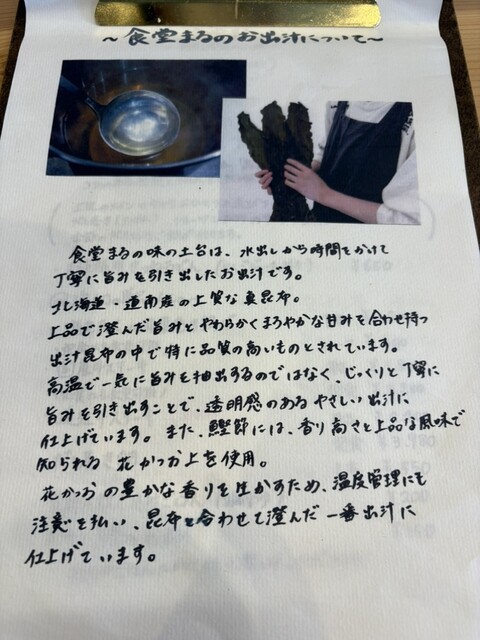 ～食堂まるのお出汁について～
食堂まるの味の土台は、水出しから時間をかけて
丁寧に旨みを引き出したお出汁です。
北海道・道南産の上質な真昆布。
上品で澄んだ旨みとやわらかくまろやかな甘みを合わせ持つ
出汁昆布の中で特に品質の高いものとされています。
高温で一気に旨みを抽出するのではなく、じっくりと丁寧に
旨みを引き出すことで、透明感のあるやさしい出汁に
仕上げています。また、鰹節には、香り高さと上品な風味で
知られる 花かつお上を使用。
花かつおの豊かな香りを生かすため、温度管理にも
注意を払い、昆布と合わせて澄んだ一番出汁に
仕上げています。